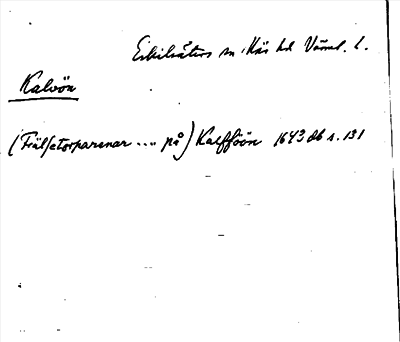 Eskilsäters sn, Näs hd Värml. l.
Kalvön
(Frälsetorparenar .... på) Kalfföön 1643 db s. 131